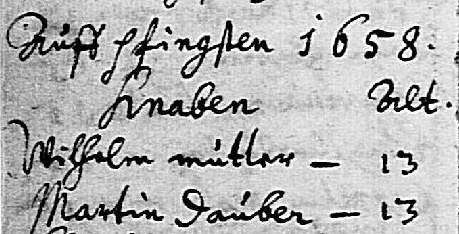 Auff pfingsten 1658.
Knaben Alt.
Wilhelm mütter - 13
Martin Dauber - 13